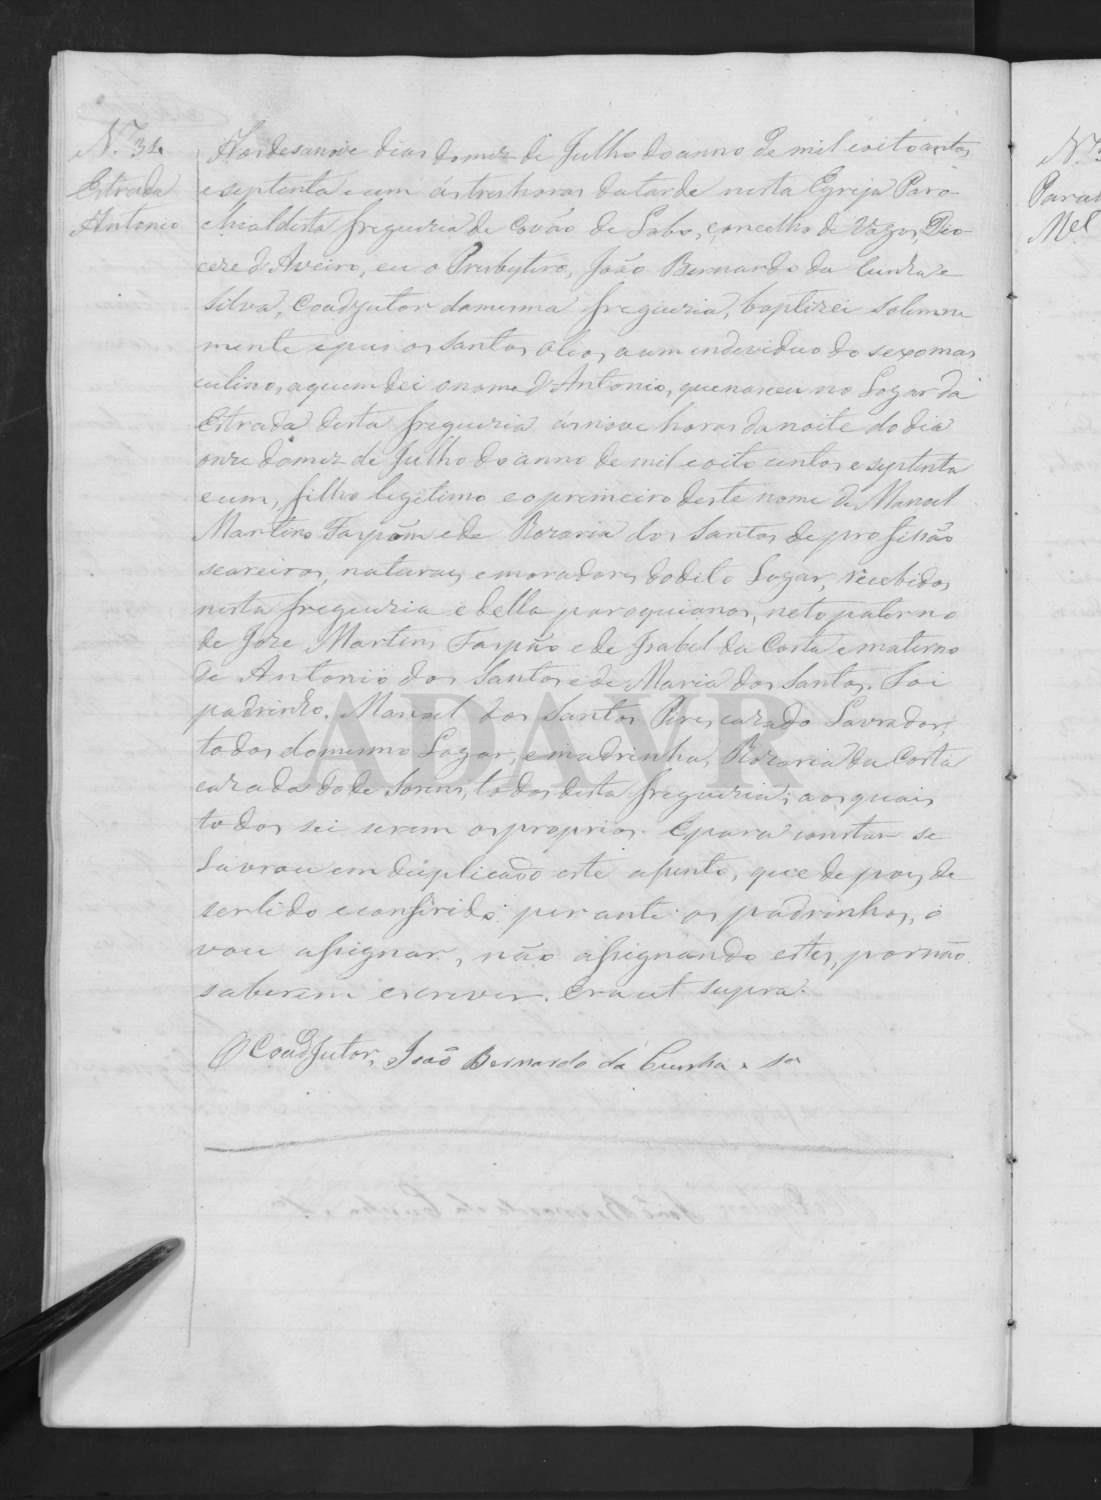 Nº 32
Estrada
Antonio
Aos desanove dias do mez de Julho do anno de mil e oito centos
e septenta e um ás tres horas da tarde nesta Egreja Paro-
chial desta freguezia de Covão de Lobo, concelho de Vagos, Dio-
ceze d'Aveiro, eu o Presbytero, João Bernardo da Cunha e
Silva, Coadjutor da mesma freguezia, baptizei solemne
mente e puz os santos oleos, a um individuo do sexo mas
culino, a quem dei o nome d'Antonio, que nasceu no Logar da
Estrada desta freguezia ás nove horas da noite do dia
onze do mez de Julho do anno de mil e oito centos e septenta
e um, filho legitimo e o primeiro deste nome de Manoel
Martins Taypão e de Rozaria dos Santos de profissão
seareiros, naturaes e moradores do dito Logar, recebidos
nesta freguezia e della paroquianos, neto paterno
de Joze Martins Taypão e de Izabel da Costa e materno
de Antonio dos Santos e de Maria dos Santos. Foi
padrinho, Manoel dos Santos Pires, cazado Lavrador,
todos do mesmo Logar, e madrinha, Rozaria da Costa
cazada do de Sorens, todos desta freguezia, aos quais
todos sei serem os proprios. E para constar se
Lavrou em duplicado este assento, que depois de
ser lido e conferido perante os padrinhos, o
vou assignar, não assignando estes, por não
saberem escrever. Era ut supra.
O Coadjutor, João Bernardo da Cunha e Sª
ADAVR
Nº
Mel